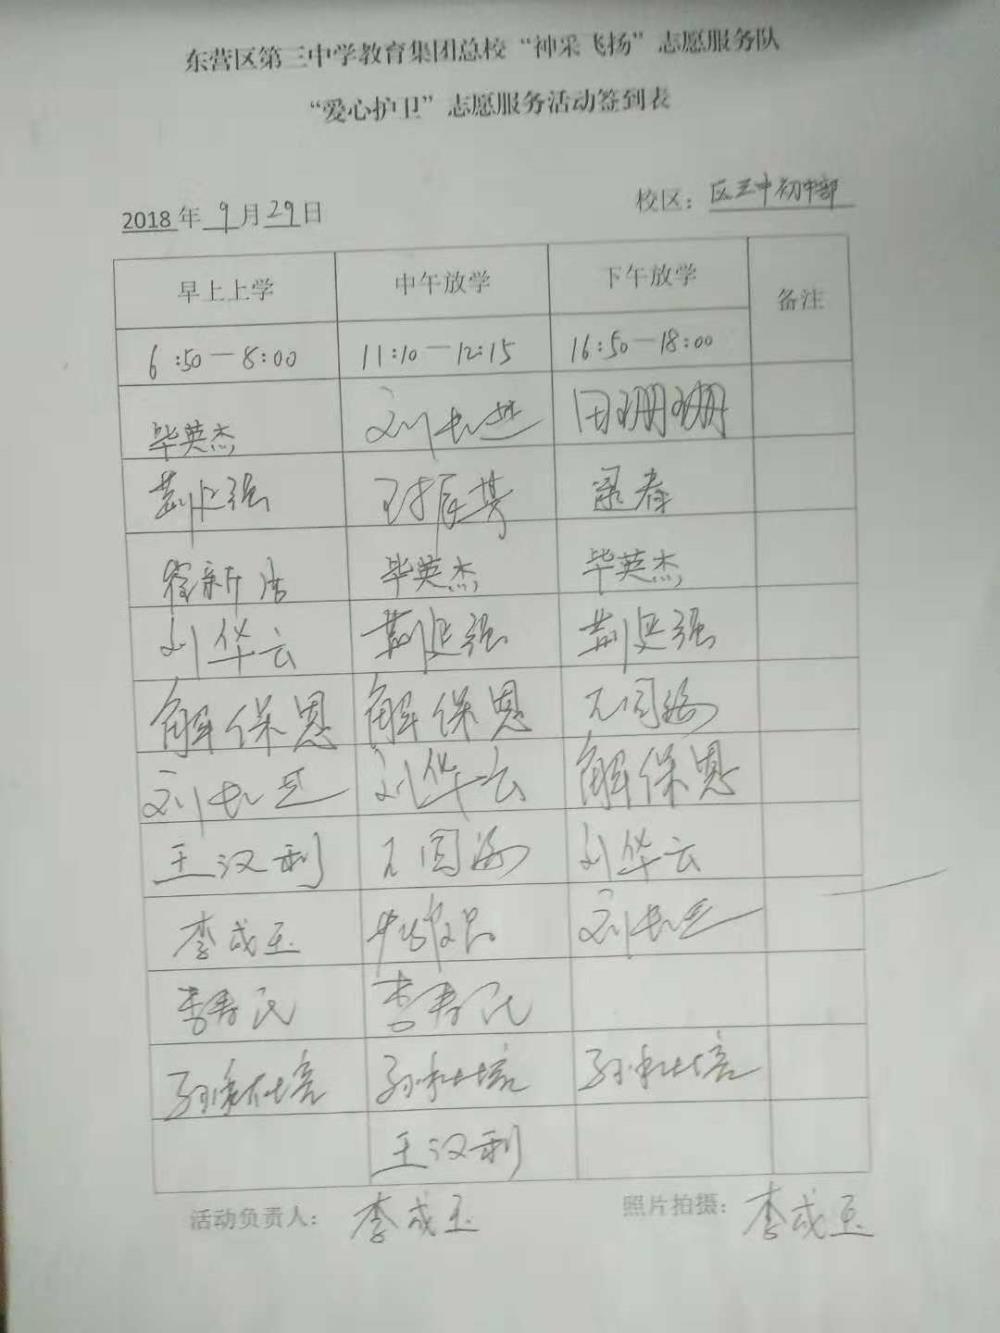 东营区第三中学教育集团总校“神采飞扬”志愿服务队
“爱心护卫”志愿服务活动签到表
2018年9月29日 校区：区三中初中部
早上上学 中午放学 下午放学 备注
6:50－8:00 11:10－12:15 16:50－18:00
毕英杰 刘 田珊珊
荆 强 春
新 毕英杰 毕英杰
刘华云 荆 强 荆 强
解保恩 解保恩
刘 刘华云 解保恩
王汉利 刘华云
李成玉 刘
李寿民 李寿民
孙 培 孙 培 孙 培
王汉利
活动负责人：李成玉 照片拍摄：李成玉